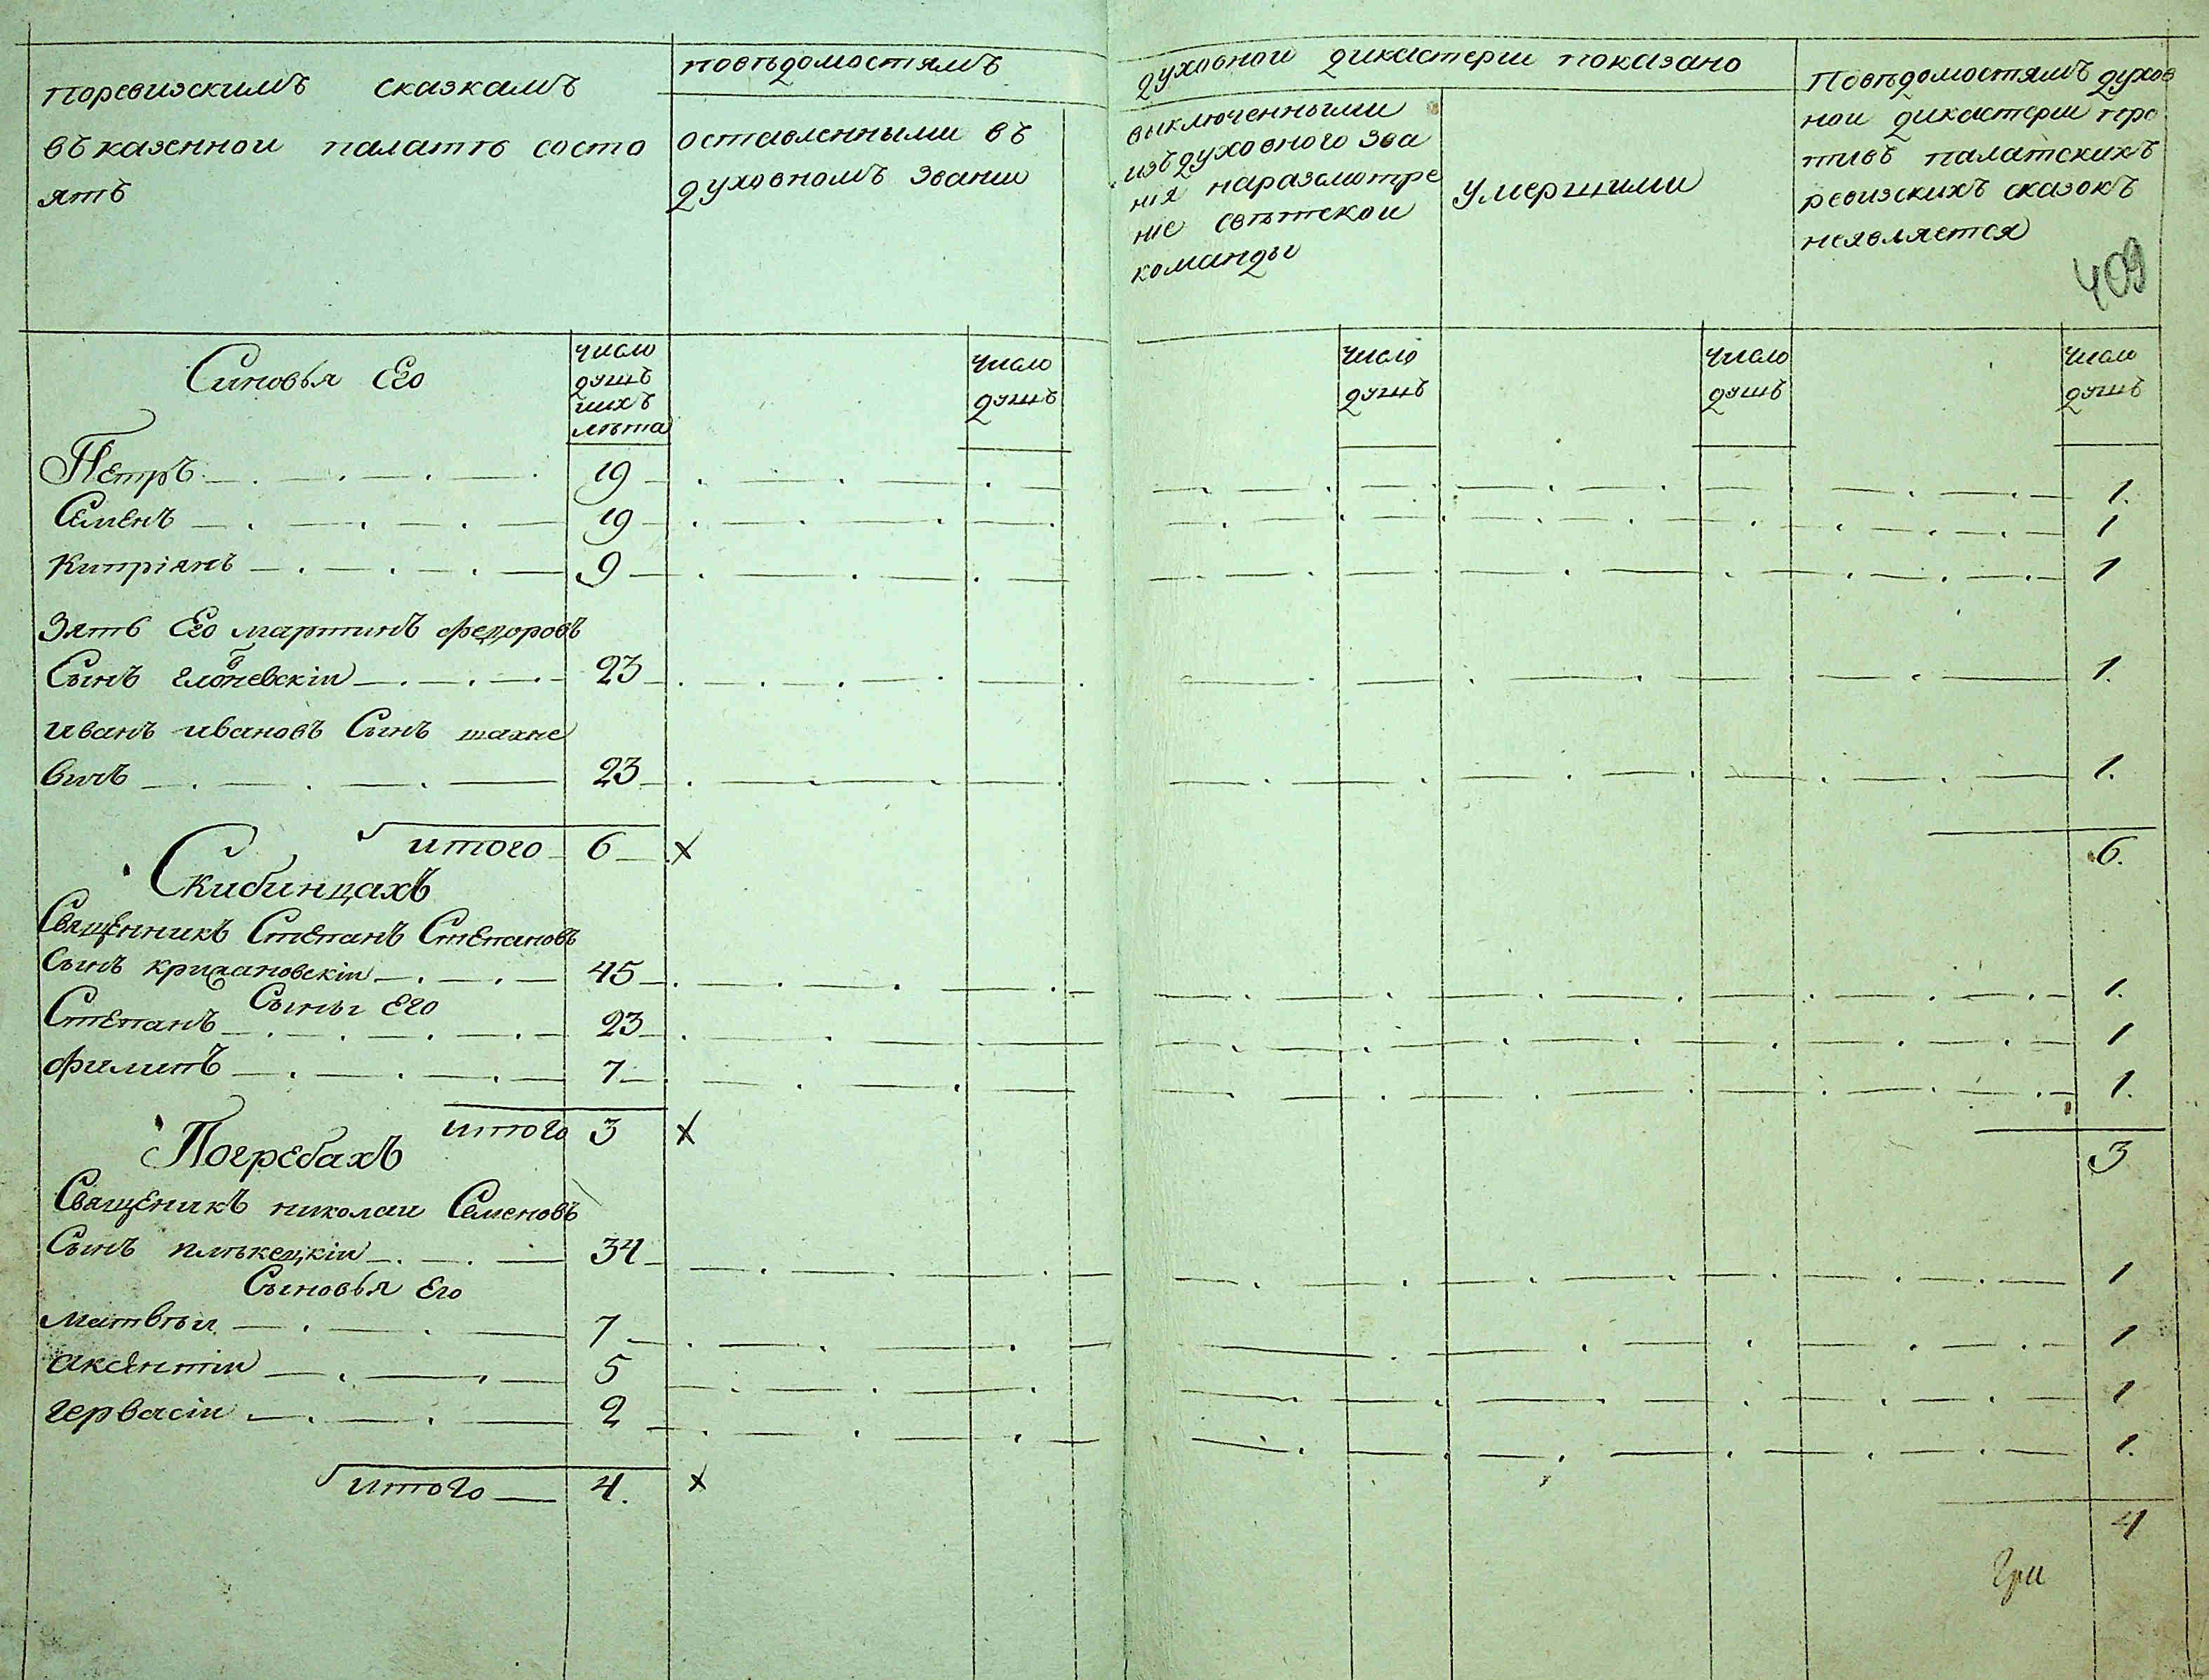 поревизскимъ сказкамъ
въ казеннои палатѣ состо
ятъ
повѣдомостямъ
оставленными въ
духовномъ звании
духовнои дикастерии показано
выключенными
изъ духовного зва
ния наразсмотре
ние свѣтскои
команды
умершими
Повѣдомостямъ духов
нои дикастерии про
тивъ палатскихъ
ревизскихъ сказокъ
неявляется
409
Синовья Его
число
душъ
ихъ
лѣта
число
душъ
число
душъ
число
душъ
число
душъ
Петръ 19 1.
Семенъ 19 1
Кипріянъ 9 1
Зять Его мартинъ федоровъ
Сынъ 23 1.
иванъ ивановъ Сынъ шахне
вичъ 23 1.
итого 6 х 6.
Скибинцахъ
Священникъ Степанъ Степановъ
Сынъ крижановскіи 45 1.
Сыны Его
Степанъ 23 1
филипъ 7 1.
итого 3 х 3
Погребахъ
Священикъ николаи Семеновъ
Сынъ 34 1
Сыновья Его
матвѣи 7 1
аксентіи 5 1
гервасіи 2 1.
итого 4. х 4
При